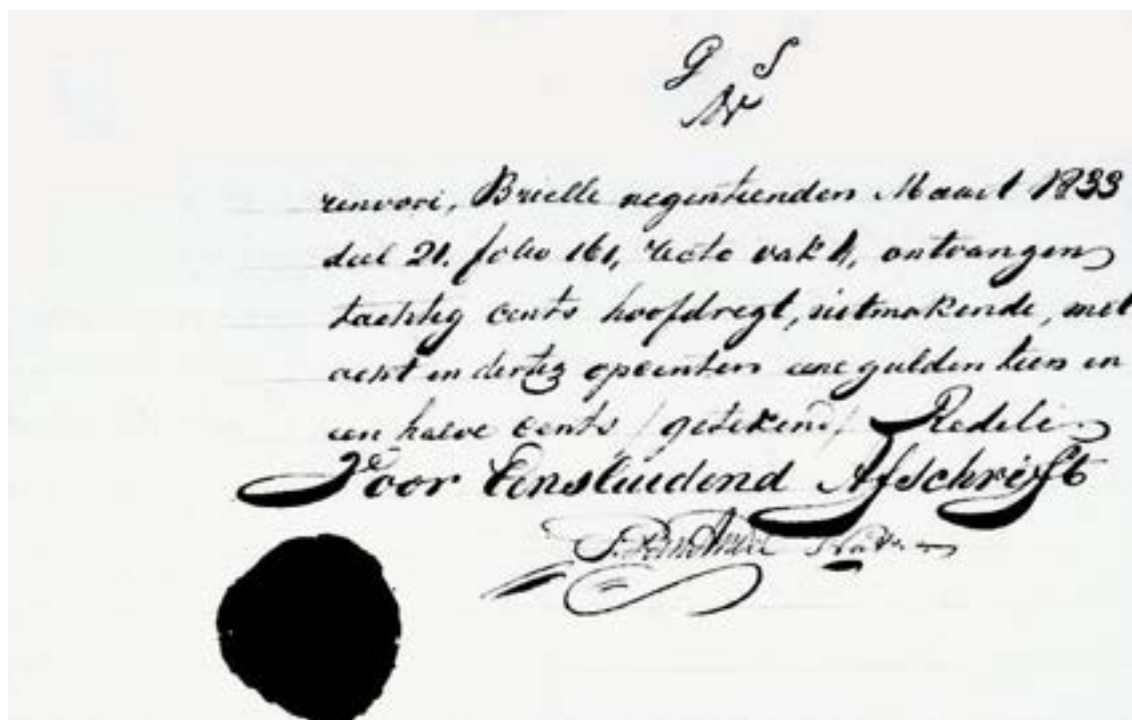 G S
renvooi, Brielle negentienden Maart 1833
deel 21. folio 161, recto vak 1, ontvangen
tachtig cents hoofdregt, uitmakende, met
acht en dertig opcenten eene gulden tien en
een halve cents / getekend / Redeli
Voor Eensluidend Afschrift